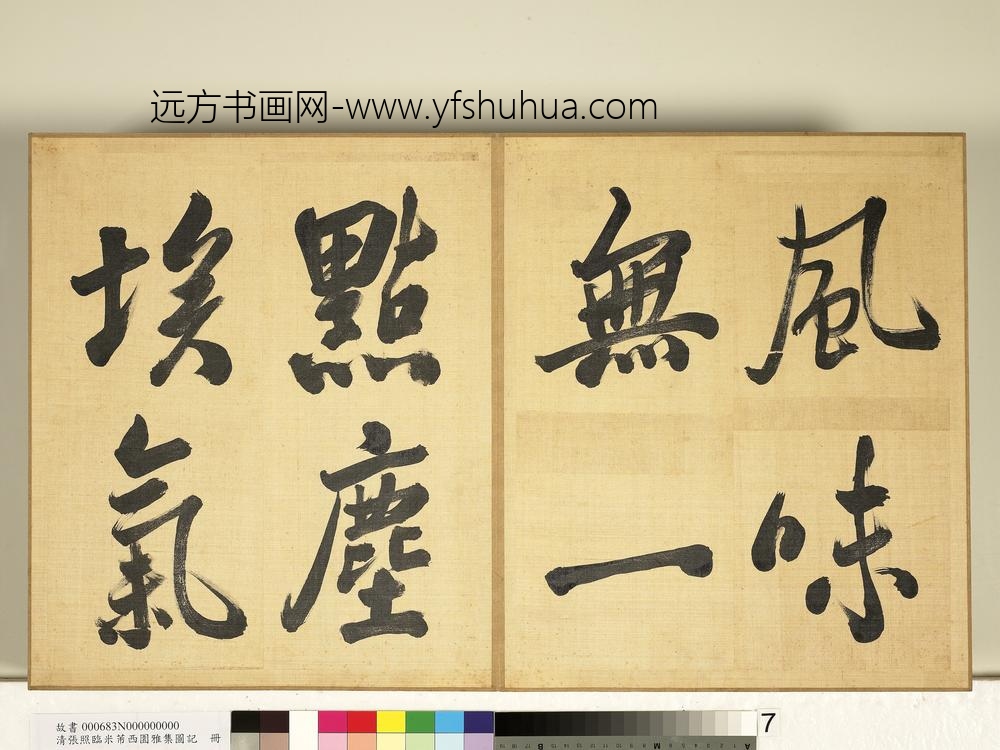 远方书画网-www.yfshuhua.com
風味
無一
點塵
埃氣
故書 000683N000000000
清張照臨米芾西園雅集圖記 冊
7